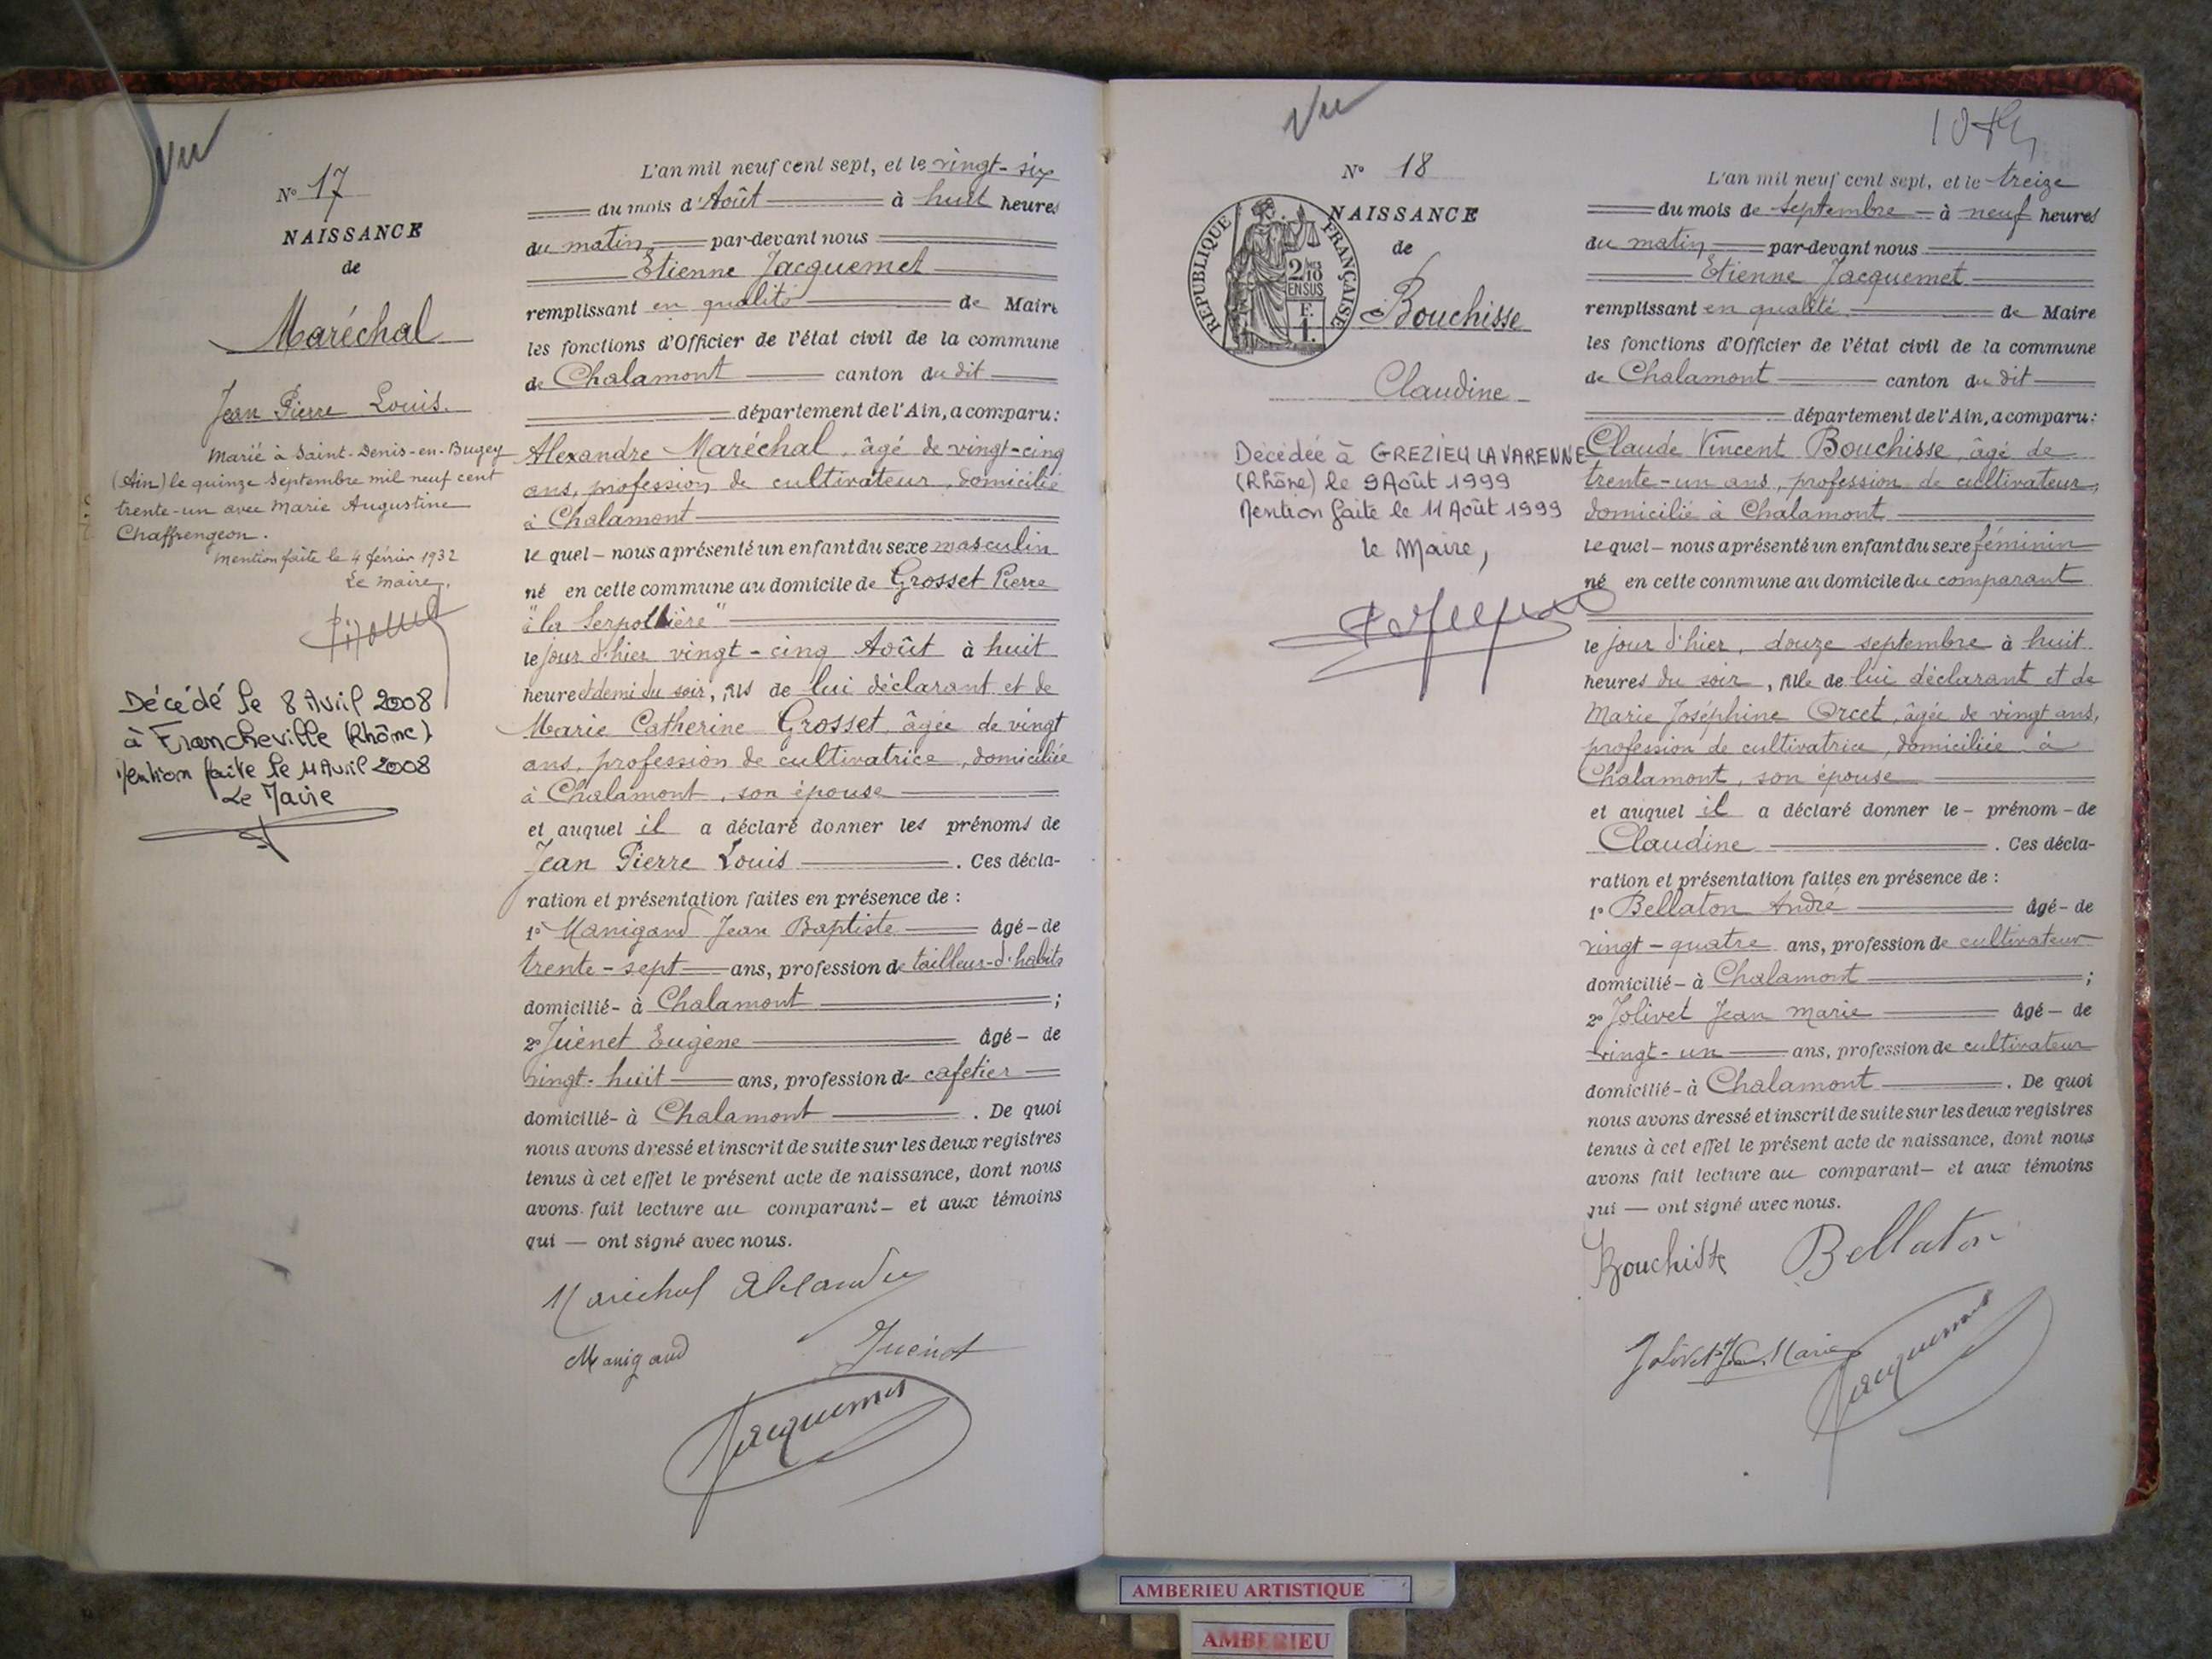 Vu
N° 17
NAISSANCE
de
Maréchal
Jean Pierre Louis.
Marié à Saint-Denis-en-Bugey
(Ain) le quinze Septembre mil neuf cent
trente-un avec Marie Augustine
Chaffrengeon.
Mention faite le 4 février 1932
Le maire,
Décédé le 8 Avril 2008
à Francheville (Rhône)
Mention faite le 11 Avril 2008
Le Maire
L'an mil neuf cent sept, et le vingt-six
du mois d'Août à huit heures
du matin par-devant nous
Etienne Jacquemet
remplissant en qualité de Maire
les fonctions d'Officier de l'état civil de la commune
de Chalamont canton du dit
département de l'Ain, a comparu:
Alexandre Maréchal, âgé de vingt-cinq
ans, profession de cultivateur, domicilié
à Chalamont
le quel - nous a présenté un enfant du sexe masculin
né en cette commune au domicile de Grosset Pierre
"à la Serpollière"
le jour d'hier vingt-cinq Août à huit
heure et demi du soir, fils de lui déclarant et de
Marie Catherine Grosset, âgée de vingt
ans, profession de cultivatrice, domiciliée
à Chalamont, son épouse
et auquel il a déclaré donner les prénoms de
Jean Pierre Louis. Ces décla-
ration et présentation faites en présence de :
1° Manigand Jean Baptiste âgé - de
trente-sept ans, profession de tailleur-d'habits
domicilié - à Chalamont ;
2° Juénet Eugène âgé - de
vingt-huit ans, profession de cafetier
domicilié - à Chalamont. De quoi
nous avons dressé et inscrit de suite sur les deux registres
tenus à cet effet le présent acte de naissance, dont nous
avons fait lecture au comparant - et aux témoins
qui — ont signé avec nous.
Maréchal Alexandre
Manigand Juénet
Jacquemet
Vu
N° 18
NAISSANCE
de
Bouchisse
Claudine
REPUBLIQUE FRANÇAISE
2/10
EN SUS
F.
1.
Décédée à GREZIEU LA VARENNE
(Rhône) le 9 Août 1999
Mention faite le 11 Août 1999
le Maire,
L'an mil neuf cent sept, et le treize
du mois de septembre - à neuf heures
du matin par-devant nous
Etienne Jacquemet
remplissant en qualité de Maire
les fonctions d'Officier de l'état civil de la commune
de Chalamont canton du dit
département de l'Ain, a comparu:
Claude Vincent Bouchisse, âgé de
trente-un ans, profession de cultivateur,
domicilié à Chalamont
le quel - nous a présenté un enfant du sexe féminin
né en cette commune au domicile du comparant
le jour d'hier, douze septembre à huit
heures du soir, fille de lui déclarant et de
Marie Joséphine Orcet, âgée de vingt ans,
profession de cultivatrice, domiciliée à
Chalamont, son épouse
et auquel il a déclaré donner le - prénom - de
Claudine. Ces décla-
ration et présentation faites en présence de :
1° Bellaton André âgé - de
vingt-quatre ans, profession de cultivateur
domicilié - à Chalamont ;
2° Jolivet Jean Marie âgé - de
vingt-un ans, profession de cultivateur
domicilié - à Chalamont. De quoi
nous avons dressé et inscrit de suite sur les deux registres
tenus à cet effet le présent acte de naissance, dont nous
avons fait lecture au comparant - et aux témoins
qui — ont signé avec nous.
Bouchisse Bellaton
Jolivet Jean Marie Jacquemet
AMBERIEU ARTISTIQUE
AMBERIEU